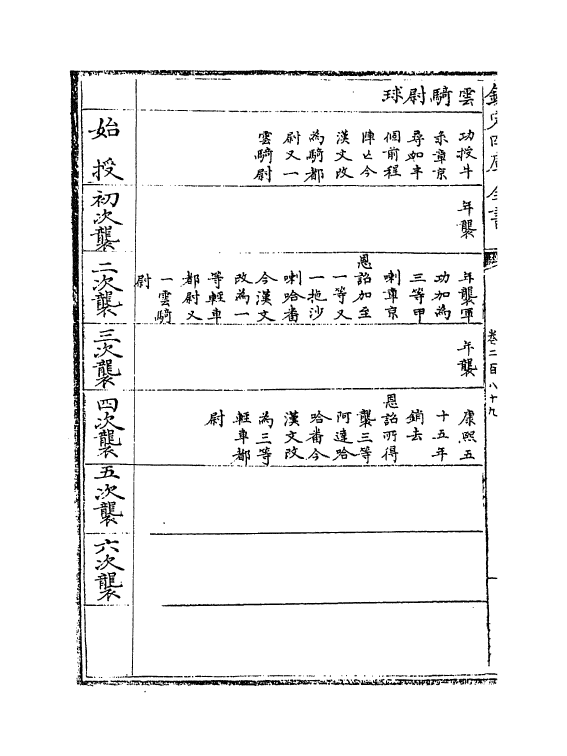 欽定四庫全書
卷二百八十九
雲騎尉球
功授牛
彔章京
尋加半
個前程
陣亡今
漢文改
為騎都
尉又一
雲騎尉
始授
年襲
初次襲
年襲軍
功加為
三等甲
喇章京
恩詔加至
一等又
一拖沙
喇哈番
今漢文
改為一
等輕車
都尉又
一雲騎
尉
二次襲
年襲
三次襲
康熙五
十五年
銷去
恩詔所得
襲三等
阿達哈
哈番今
漢文改
為三等
輕車都
尉
四次襲
五次襲
六次襲